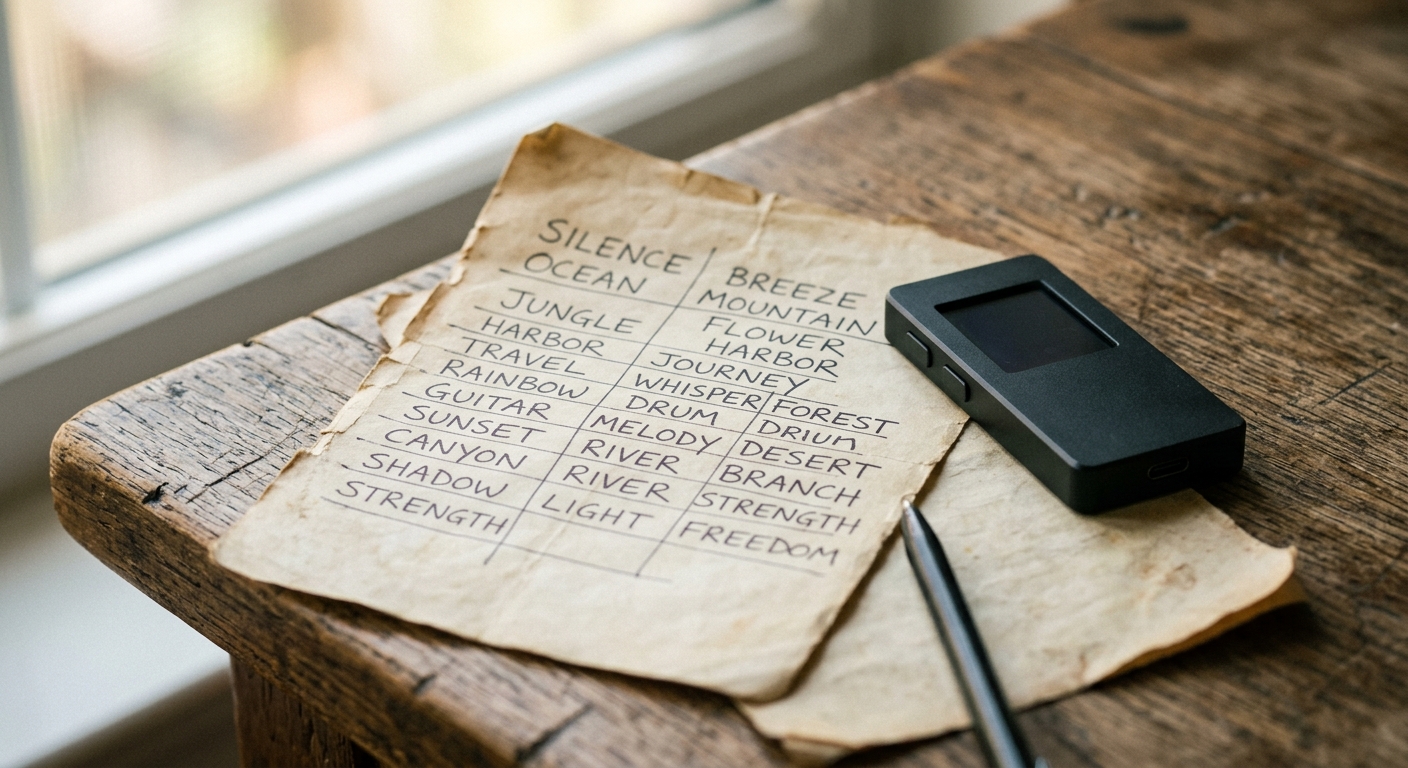 SILENCE BREEZE
OCEAN MOUNTAIN
JUNGLE FLOWER
HARBOR HARBOR
TRAVEL JOURNEY
RAINBOW WHISPER FOREST
GUITAR DRUM
SUNSET MELODY DESERT
CANYON RIVER BRANCH
SHADOW RIVER STRENGTH
STRENGTH LIGHT FREEDOM